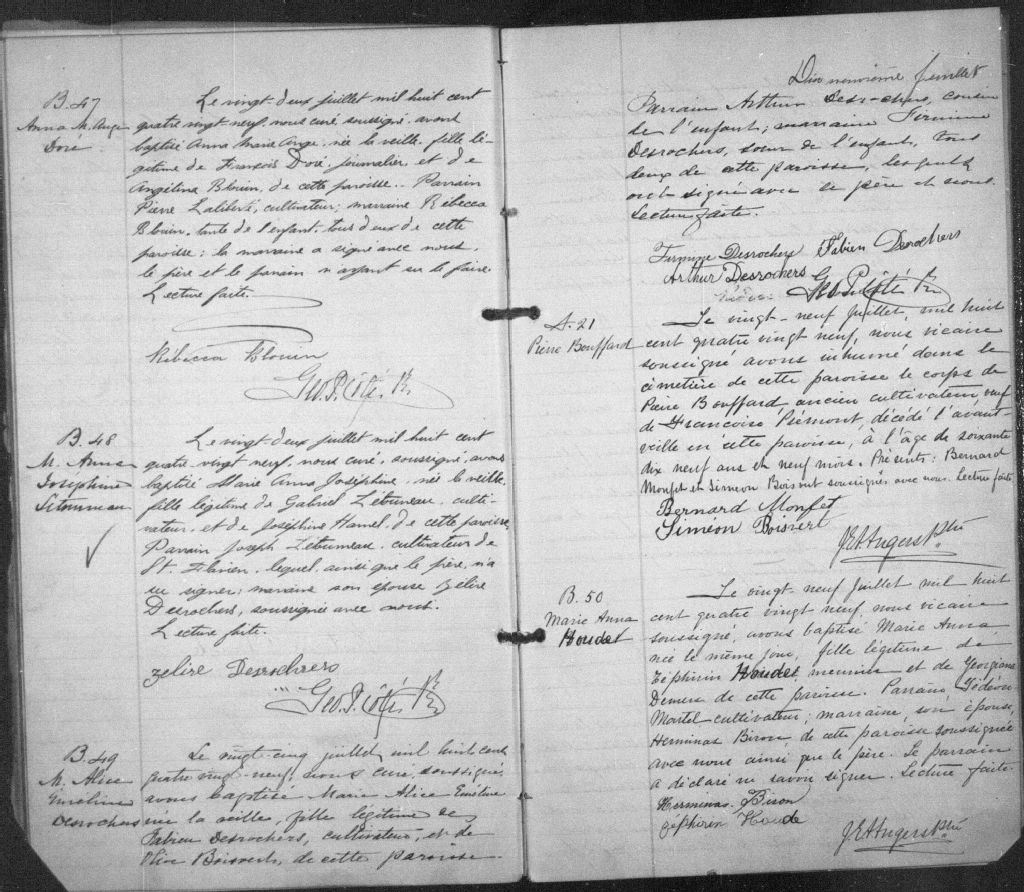 B. 47
Anna M. Ange
Dore
Le vingt-deux juillet mil huit cent
quatre vingt neuf, nous curé soussigné, avons
baptisé Anna Marie Ange, née la veille, fille lé-
gitime de François Doré, journalier, et de
Angélina Blouin, de cette paroisse. Parrain
Pierre Laliberté, cultivateur; marraine Rébecca
Blouin, tante de l'enfant, tous deux de cette
paroisse; la marraine a signé avec nous,
le père et le parrain n'ayant su le faire.
Lecture faite.
Rébecca Blouin
Geo. P. Côté, Ptr.
B. 48
M. Anna
Josephine
Létourneau
Le vingt deux juillet mil huit cent
quatre-vingt neuf, nous curé, soussigné, avons
baptisé Marie Anna Joséphine, née la veille,
fille légitime de Gabriel Létourneau, culti-
vateur, et de Joséphine Hamel, de cette paroisse.
Parrain Joseph Létourneau, cultivateur de
St. Flavien, lequel, ainsi que le père, n'a
su signer, marraine son épouse Zélire
Desrochers, soussignée avec nous.
Lecture faite.
zelire Desrochers
Geo. P. Côté, Ptr
B. 49
M. Alice
Eméline
Desrochers
Le vingt-cinq juillet, mil huit cent
quatre vingt-neuf, nous curé, soussigné,
avons baptisé Marie Alice Eméline
née la veille, fille légitime de
Fabien Desrochers, cultivateur, et de
Olive Boisvert, de cette paroisse.
Dix neuvième feuillet
Parrain Arthur Desrochers, cousin
de l'enfant; marraine
Desrochers, soeur de l'enfant, tous
deux de cette paroisse, lesquels
ont signé avec le père et nous.
Lecture faite.
Desrochers Fabien Desrochers
Arthur Desrochers
Geo P. Côté Ptr
S. 21
Pierre Bouffard
Le vingt-neuf juillet, mil huit
cent quatre vingt neuf, nous vicaire
soussigné avons inhumé dans le
cimetière de cette paroisse le corps de
Pierre Bouffard, ancien cultivateur, veuf
de Francoise Piémont, décédé l'avant-
veille en cette paroisse, à l'âge de soixante
dix neuf ans et neuf mois. Présents: Bernard
Monfet et Simeon Boisvert soussignés avec nous. Lecture faite
Bernard Monfet
Siméon Boisvert
J. E. A. Angers Ptre
B. 50
Marie Anna
Houdet
Le vingt-neuf Juillet mil huit
cent quatre vingt neuf nous vicaire
soussigné, avons baptisé Marie Anna
née le même jour, fille légitime de
Zéphirin Houdet, meunier et de Georgiana
Demers de cette paroisse. Parrain, Gédéon
Martel cultivateur; marraine, son épouse,
Herminas Biron, de cette paroisse soussignée
avec nous ainsi que le père. Le parrain
a déclaré ne savoir signer. Lecture faite.
Herminas Biron
zéphirin Houde
J. E. A. Angers Ptre